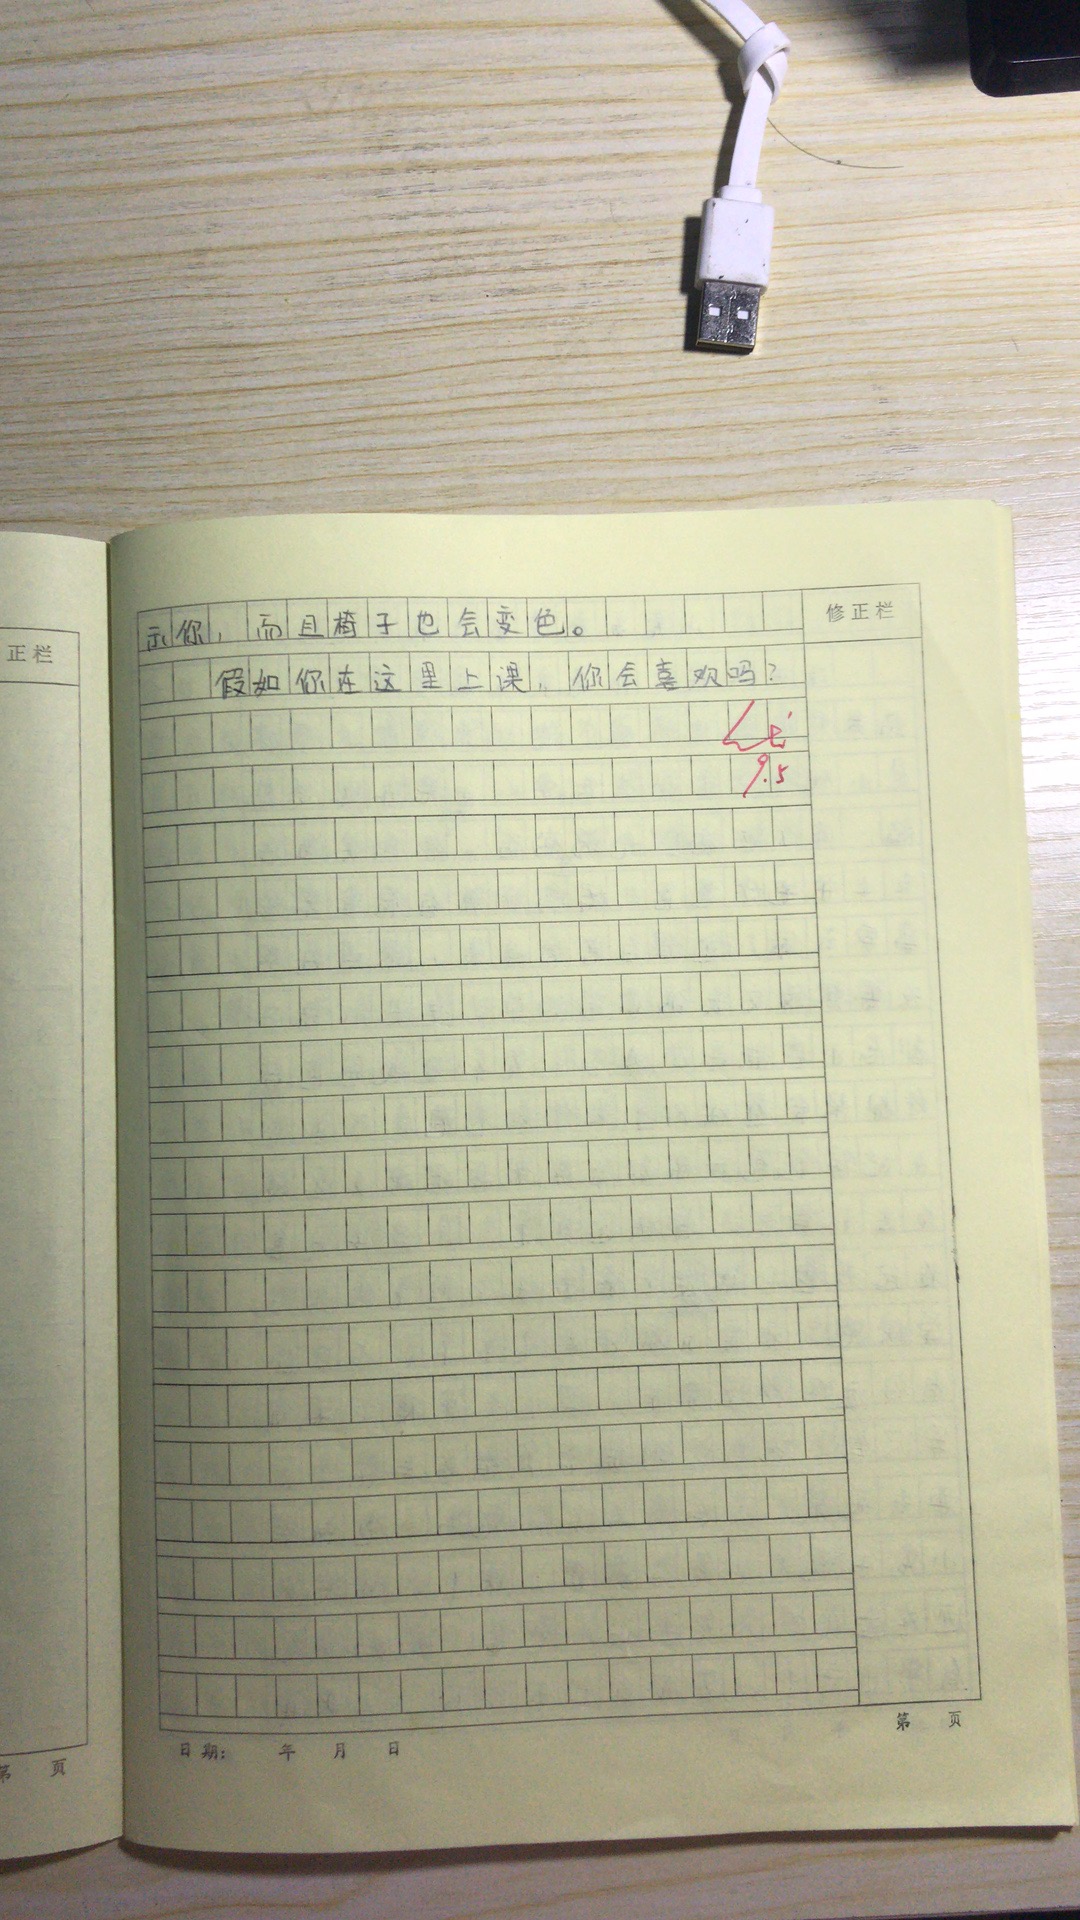 正栏
修正栏
示你，而且椅子也会变色。
假如你在这里上课，你会喜欢吗？
9.5
第 页
日期： 年 月 日
第 页